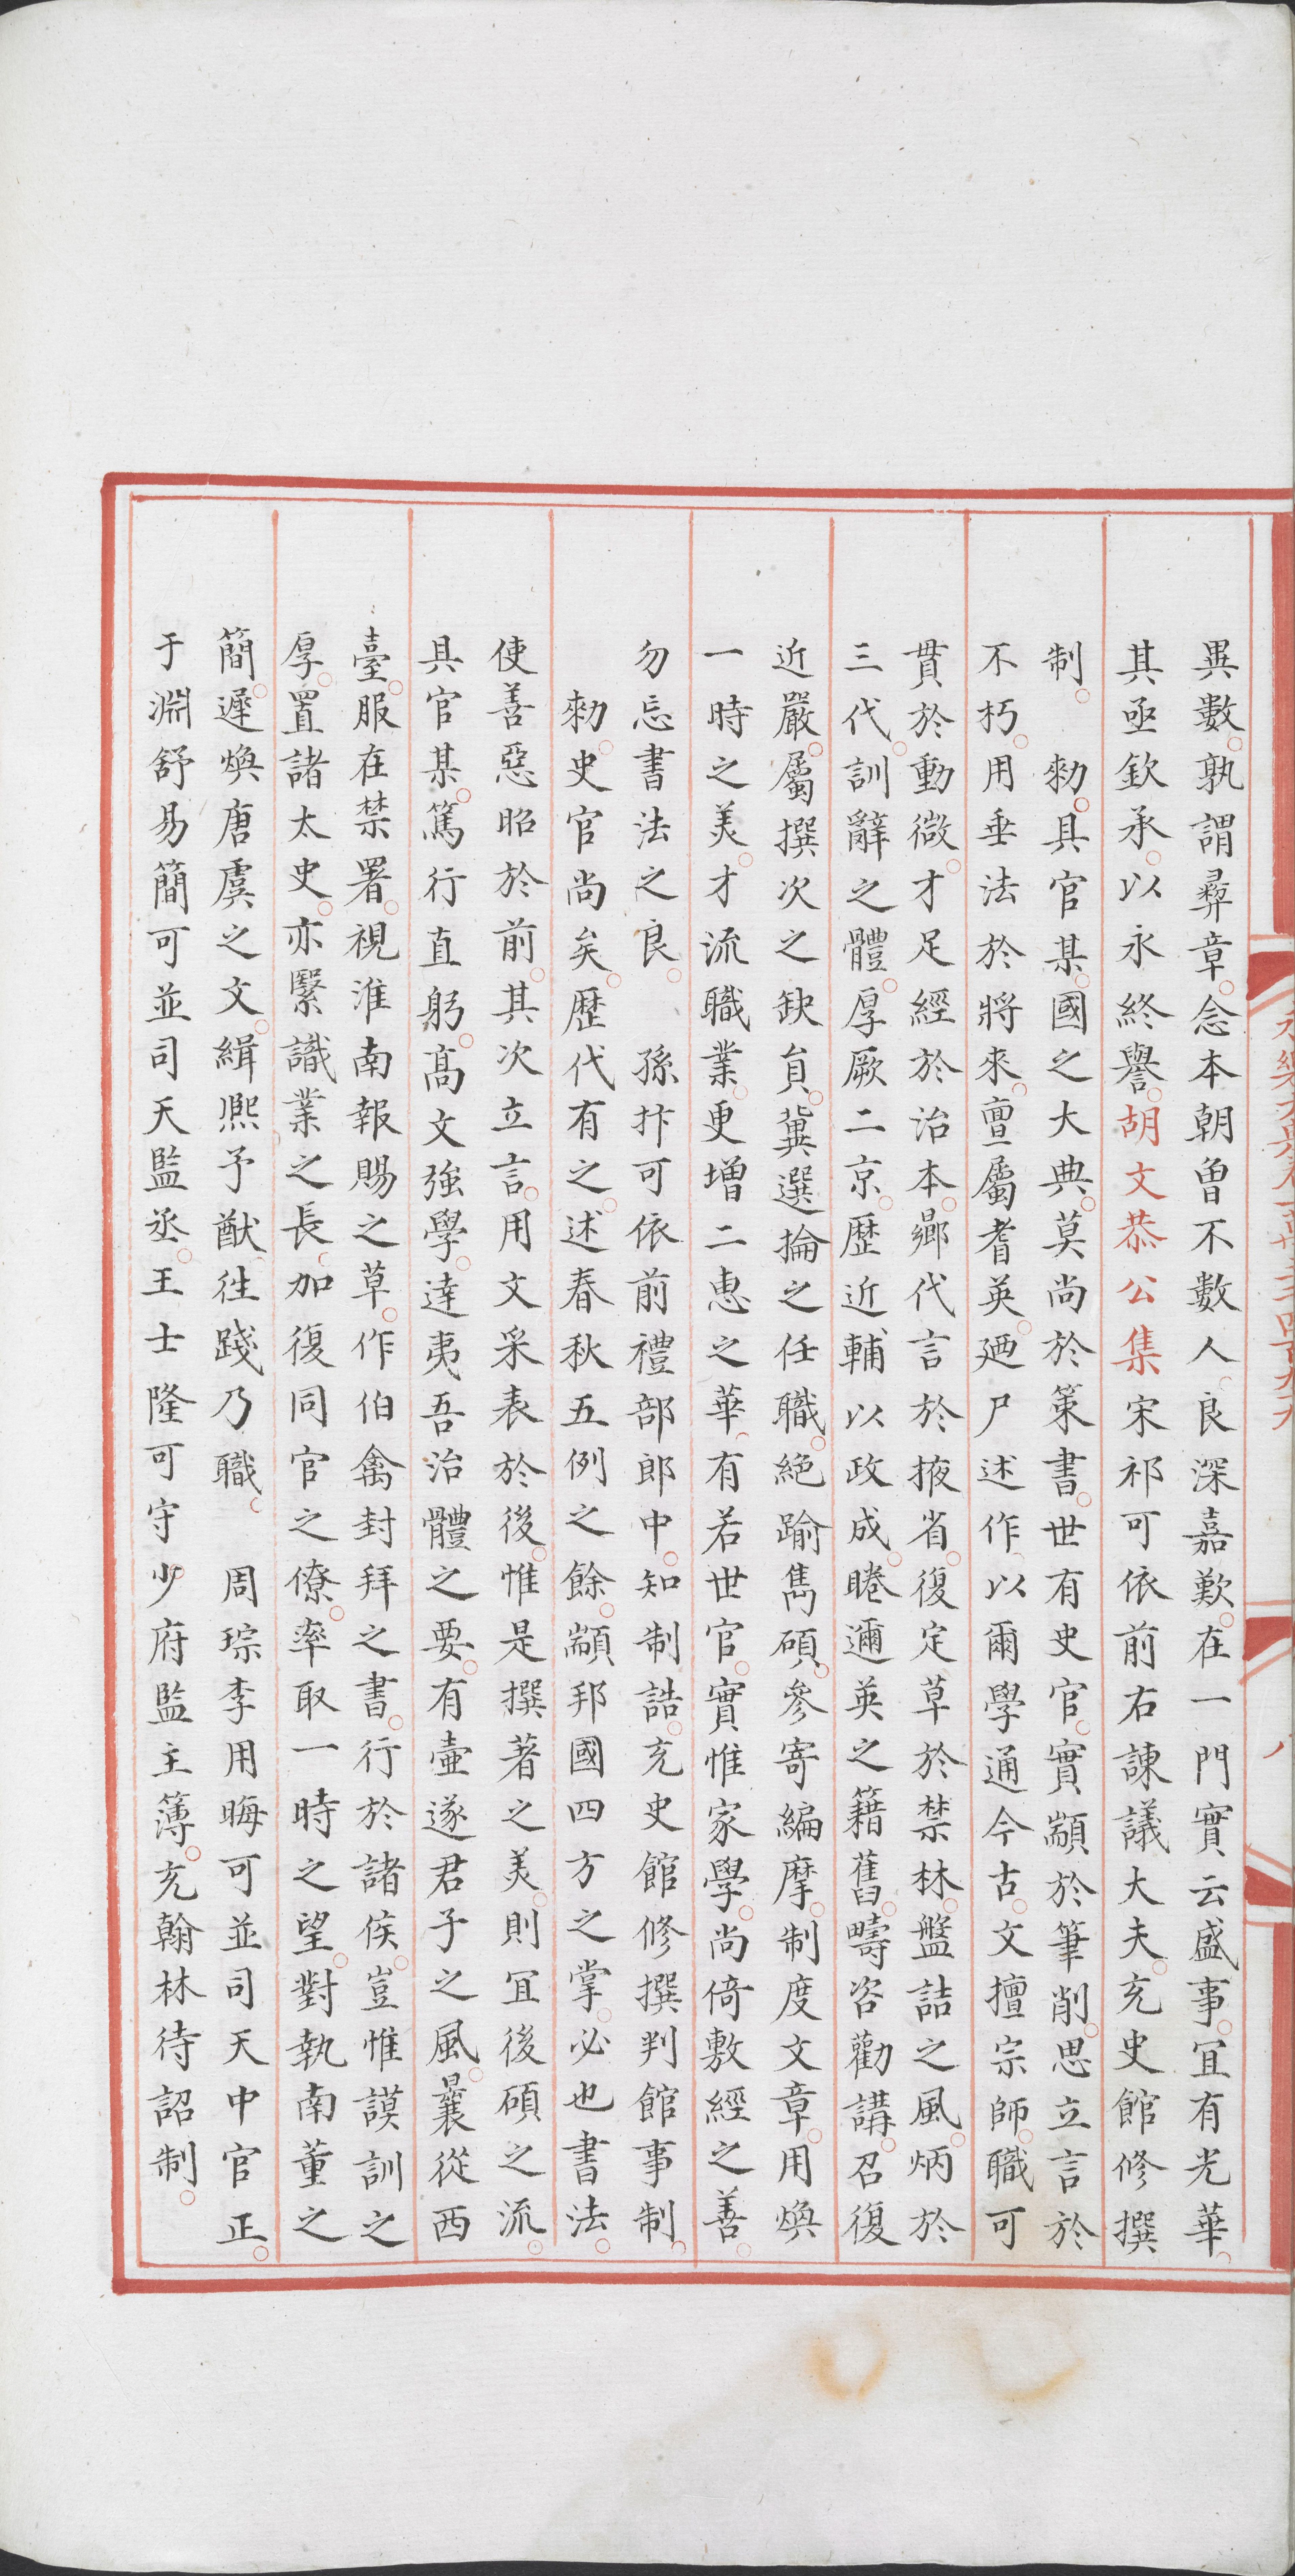 異數孰謂彝章念本朝曾不數人良深嘉歎在一門實云盛事宜有光華
其亟欽承以永終譽胡文恭公集宋祁可依前右諫議大夫充史館修撰
制　勑具官某國之大典莫尚於策書世有史官實顓於筆削思立言於
不朽用垂法於將來亶屬耆英廼尸述作以爾學通今古文擅宗師職可
貫於動微才足經於治本鄉代言於掖省復定草於禁林盤詰之風炳於
三代訓辭之體厚厥二京歷近輔以政成睠邇英之籍舊疇咨勸講召復
近嚴屬撰次之缺貟冀選掄之任職絕踰雋碩參寄編摩制度文章用煥
一時之美才流職業更增二惠之華有若世官實惟家學尚倚敷經之善
勿忘書法之良　孫抃可依前禮部郎中知制誥充史館修撰判館事制
勑史官尚矣歷代有之述春秋五例之餘顓邦國四方之掌必也書法
使善惡昭於前其次立言用文采表於後惟是撰著之美則宜後碩之流
具官某篤行直躬高文強學達夷吾治體之要有壷遂君子之風曩從西
臺服在禁署視淮南報賜之草作伯禽封拜之書行於諸侯豈惟謨訓之
厚置諸太史亦繄識業之長加復同官之僚率取一時之望對執南董之
簡遲煥唐虞之文緝熙予猷徃踐乃職　周琮李用晦可並司天中官正
于淵舒易簡可並司天監丞王士隆可守少府監主簿充翰林待詔制
永樂大典卷一萬三千四百九十九
八